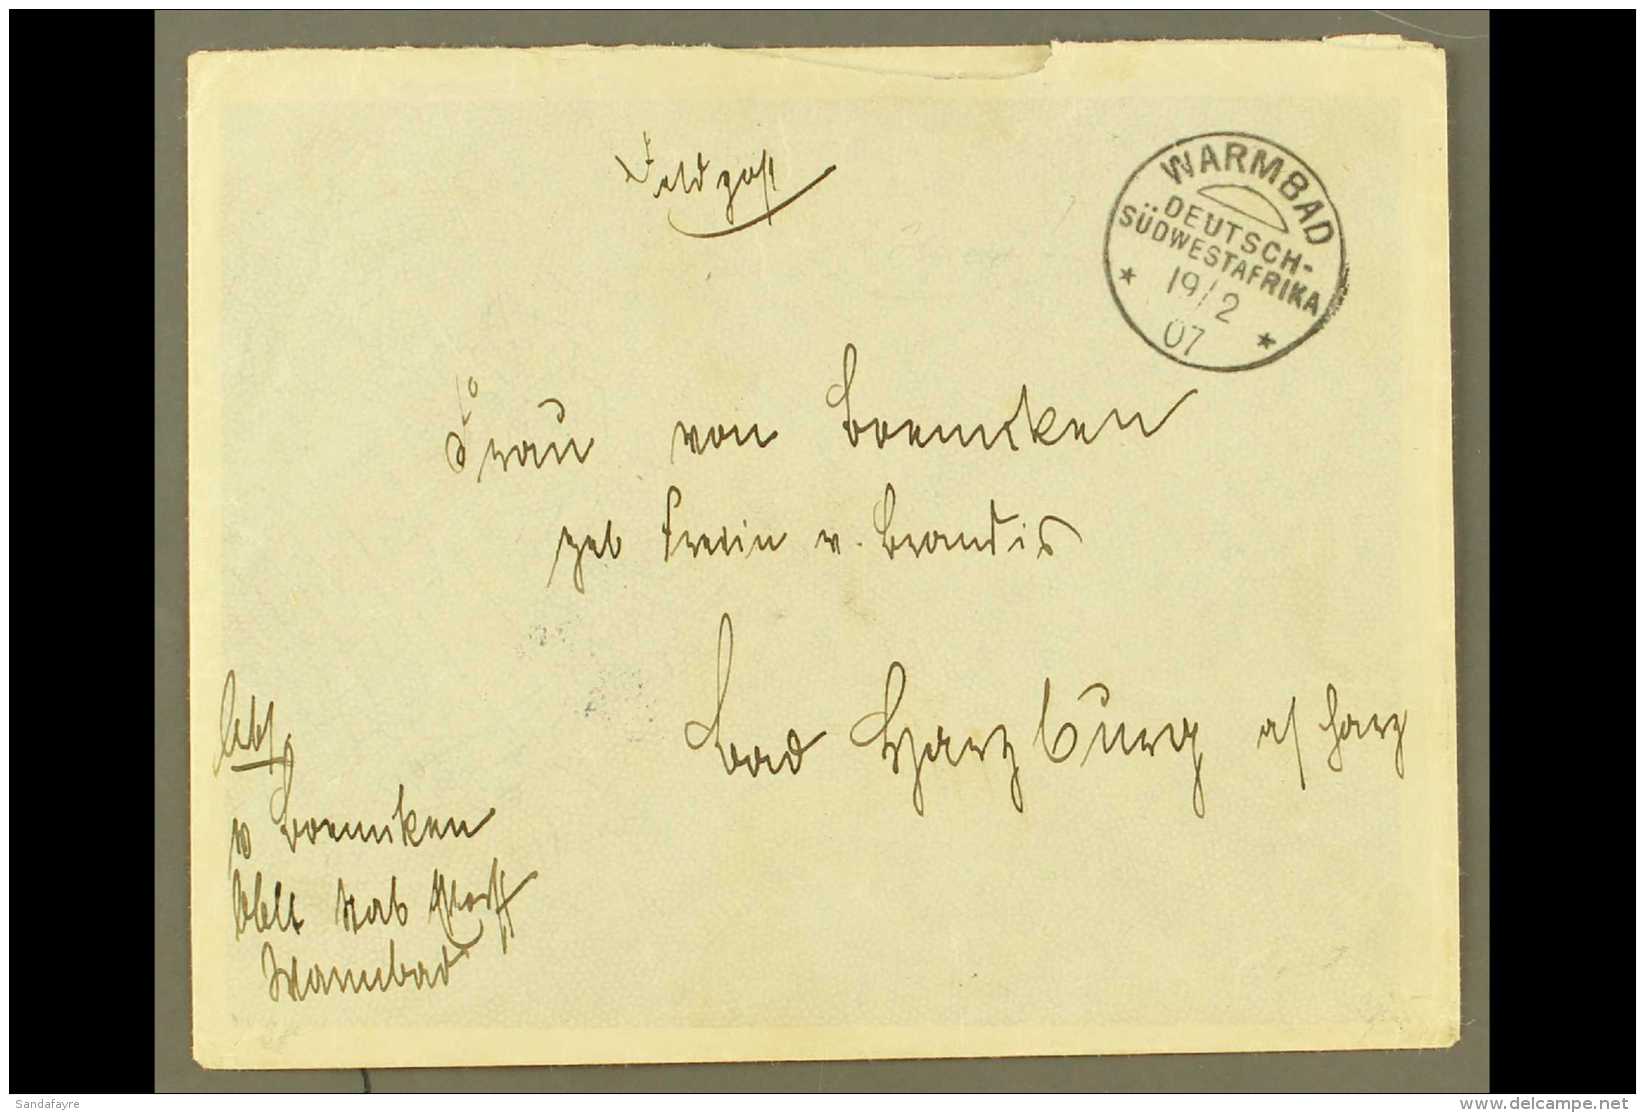 Feldpost
WARMBAD
DEUTSCH-
SÜDWESTAFRIKA
19/2
07
Frau von Boemcken
geb Freiin v. Brandis
Bad Harzburg a/Harz
Abs.
v Boemcken
Warmbad
Sandafayre
www.delcampe.net